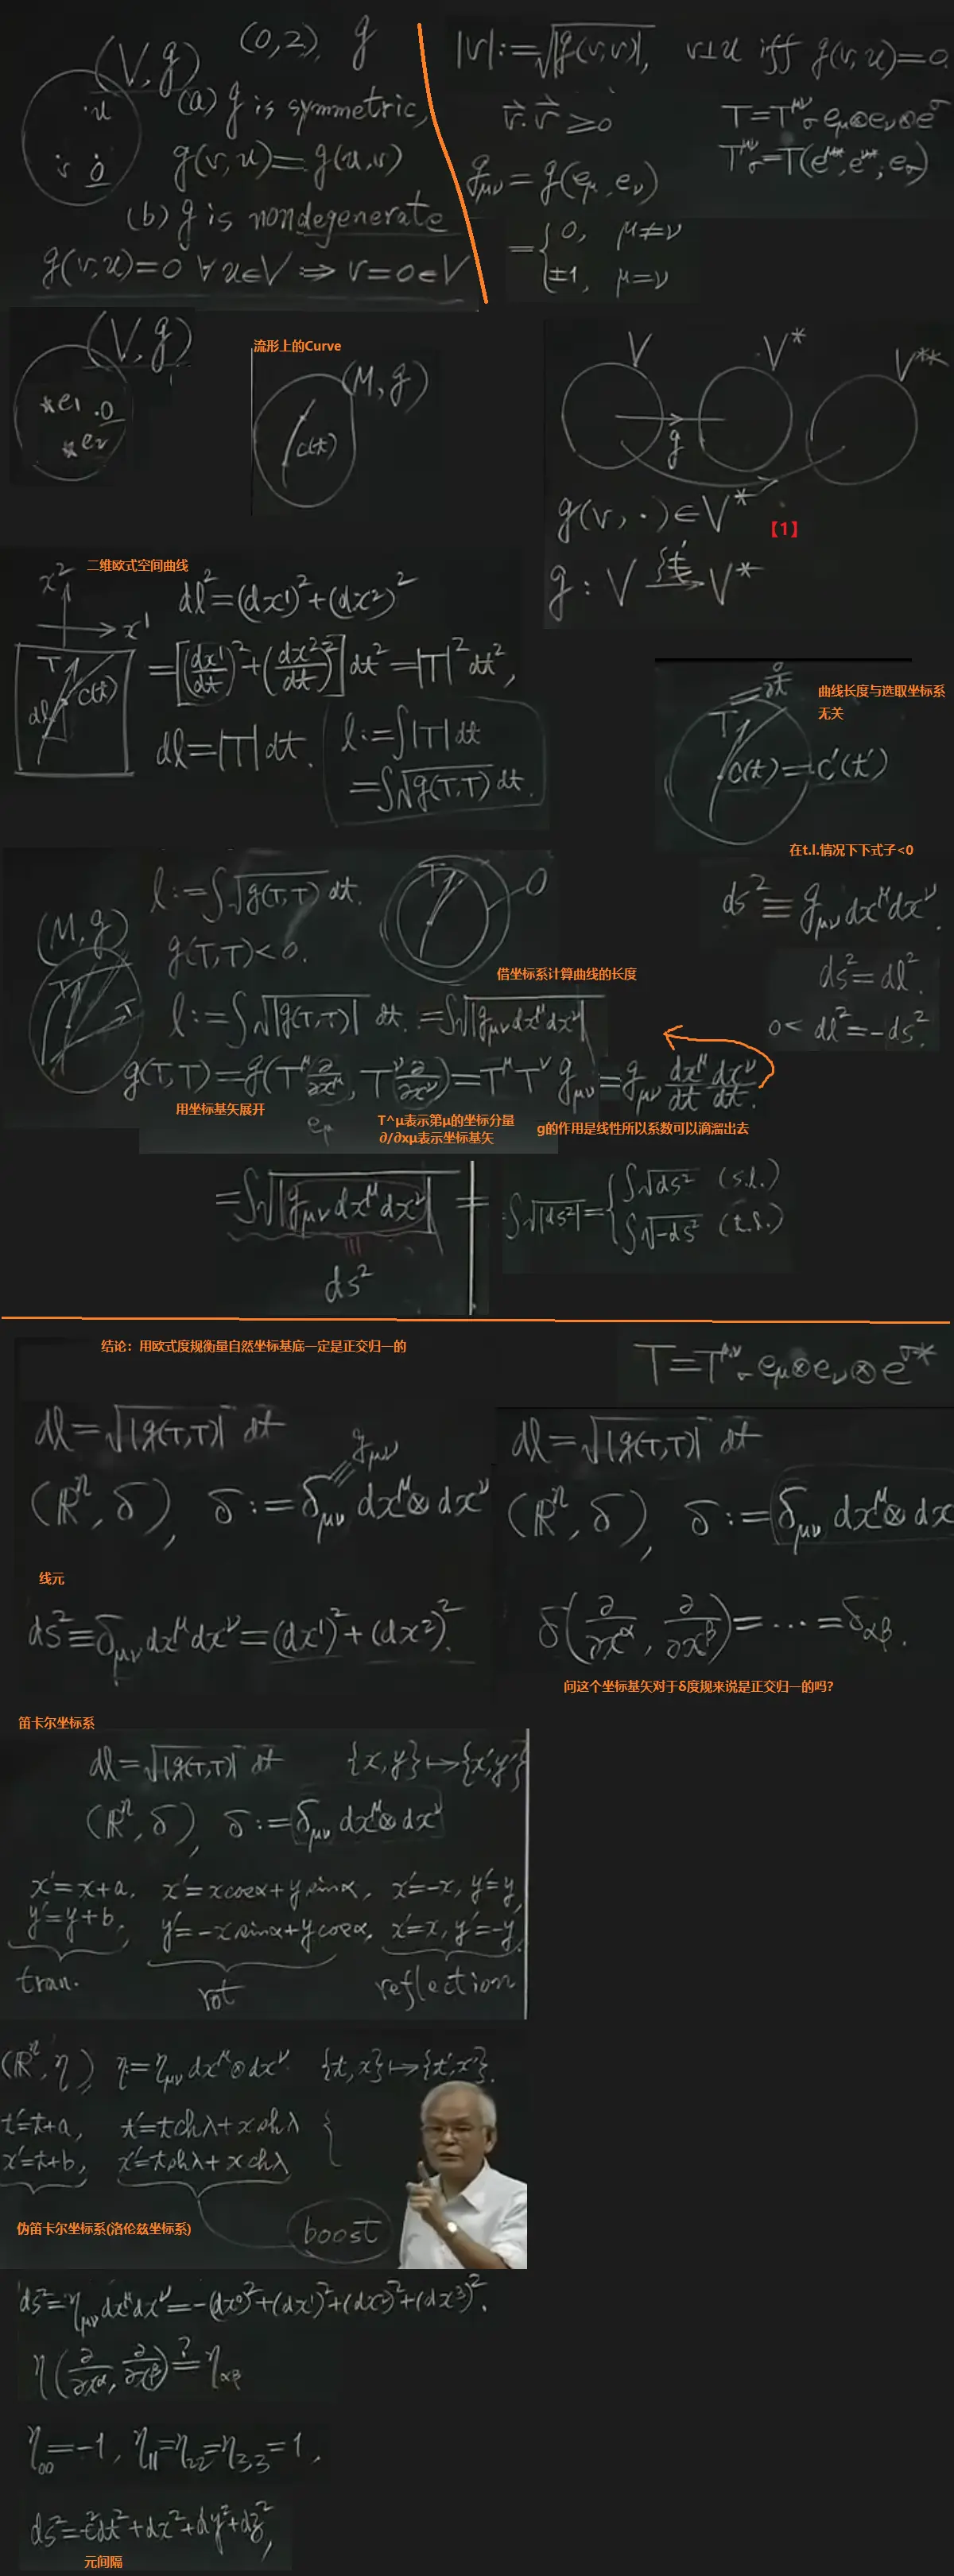 (V, g) (0,2), g
u
v 0
(a) g is symmetric,
g(v,u)=g(u,v)
(b) g is nondegenerate
g(v,u)=0 ∀u∈V ⟹ v=0∈V
|v|:=√|g(v,v)|, v⊥u iff g(v,u)=0.
v⃗·v⃗ ≥0
T=T^{μν}_σ e_μ⊗e_ν⊗e^σ
T^{μν}_σ=T(e^{μ*},e^{ν*};e_σ)
g_{μν}=g(e_μ,e_ν)
={0, μ≠ν
±1, μ=ν
(V, g)
*e₁ .0
*e₂
流形上的Curve
(M,g)
C(t)
V V* V**
g
g(v,·)∈V*
【1】
g:V 线→V*
二维欧式空间曲线
x² x¹
T C(t) dl
dl²=(dx¹)²+(dx²)²
=[(dx¹/dt)²+(dx²/dt)²]dt²=|T|²dt²,
dl=|T|dt.
l:=∫|T|dt
=∫√g(T,T) dt.
∂/∂t
T
C(t)=C′(t′)
曲线长度与选取坐标系
无关
在t.l.情况下下式子<0
ds²≡g_{μν}dx^μdx^ν.
ds²=dl².
0<dl²=-ds².
(M,g)
T T
l:=∫√g(T,T) dt.
T O
g(T,T)<0.
借坐标系计算曲线的长度
l:=∫√|g(T,T)| dt.=∫√|g_{μν}dx^μdx^ν|
g(T,T)=g(T^μ ∂/∂x^μ, T^ν ∂/∂x^ν)=T^μT^ν g_{μν}=g_{μν} dx^μ/dt dx^ν/dt.
用坐标基矢展开
e_μ
T^μ表示第μ的坐标分量
∂/∂xμ表示坐标基矢
g的作用是线性所以系数可以滴溜出去
=∫√|g_{μν}dx^μdx^ν| =
ds²
∫√|ds²|={∫√ds² (s.l.)
∫√-ds² (t.l.)
结论：用欧式度规衡量自然坐标基底一定是正交归一的
T=T^{μν}_σ e_μ⊗e_ν⊗e^{σ*}
dl=√|g(T,T)| dt
g_{μν}
(ℝⁿ,δ), δ:=δ_{μν}dx^μ⊗dx^ν
线元
ds²≡δ_{μν}dx^μdx^ν=(dx¹)²+(dx²)².
dl=√|g(T,T)| dt
(ℝⁿ,δ), δ:=δ_{μν}dx^μ⊗dx
δ(∂/∂x^α, ∂/∂x^β)=⋯=δ_{αβ}.
问这个坐标基矢对于δ度规来说是正交归一的吗?
笛卡尔坐标系
dl=√|g(T,T)| dt {x,y}↦{x′,y′}
(ℝⁿ,δ), δ:=δ_{μν}dx^μ⊗dx^ν
x′=x+a, x′=xcosα+ysinα, x′=-x, y′=y,
y′=y+b, y′=-xsinα+ycosα, x′=x, y′=-y,
tran. rot reflection
(ℝⁿ,η), η:=η_{μν}dx^μ⊗dx^ν. {t,x}↦{t′,x′}.
t′=t+a, t′=tchλ+xshλ {
x′=t+b, x′=tshλ+xchλ
boost
伪笛卡尔坐标系(洛伦兹坐标系)
ds²=η_{μν}dx^μdx^ν=-(dx⁰)²+(dx¹)²+(dx²)²+(dx³)².
η(∂/∂x^α, ∂/∂x^β)≟η_{αβ}
η₀₀=-1, η₁₁=η₂₂=η₃,₃=1,
ds²=-c²dt²+dx²+dy²+dz²,
元间隔